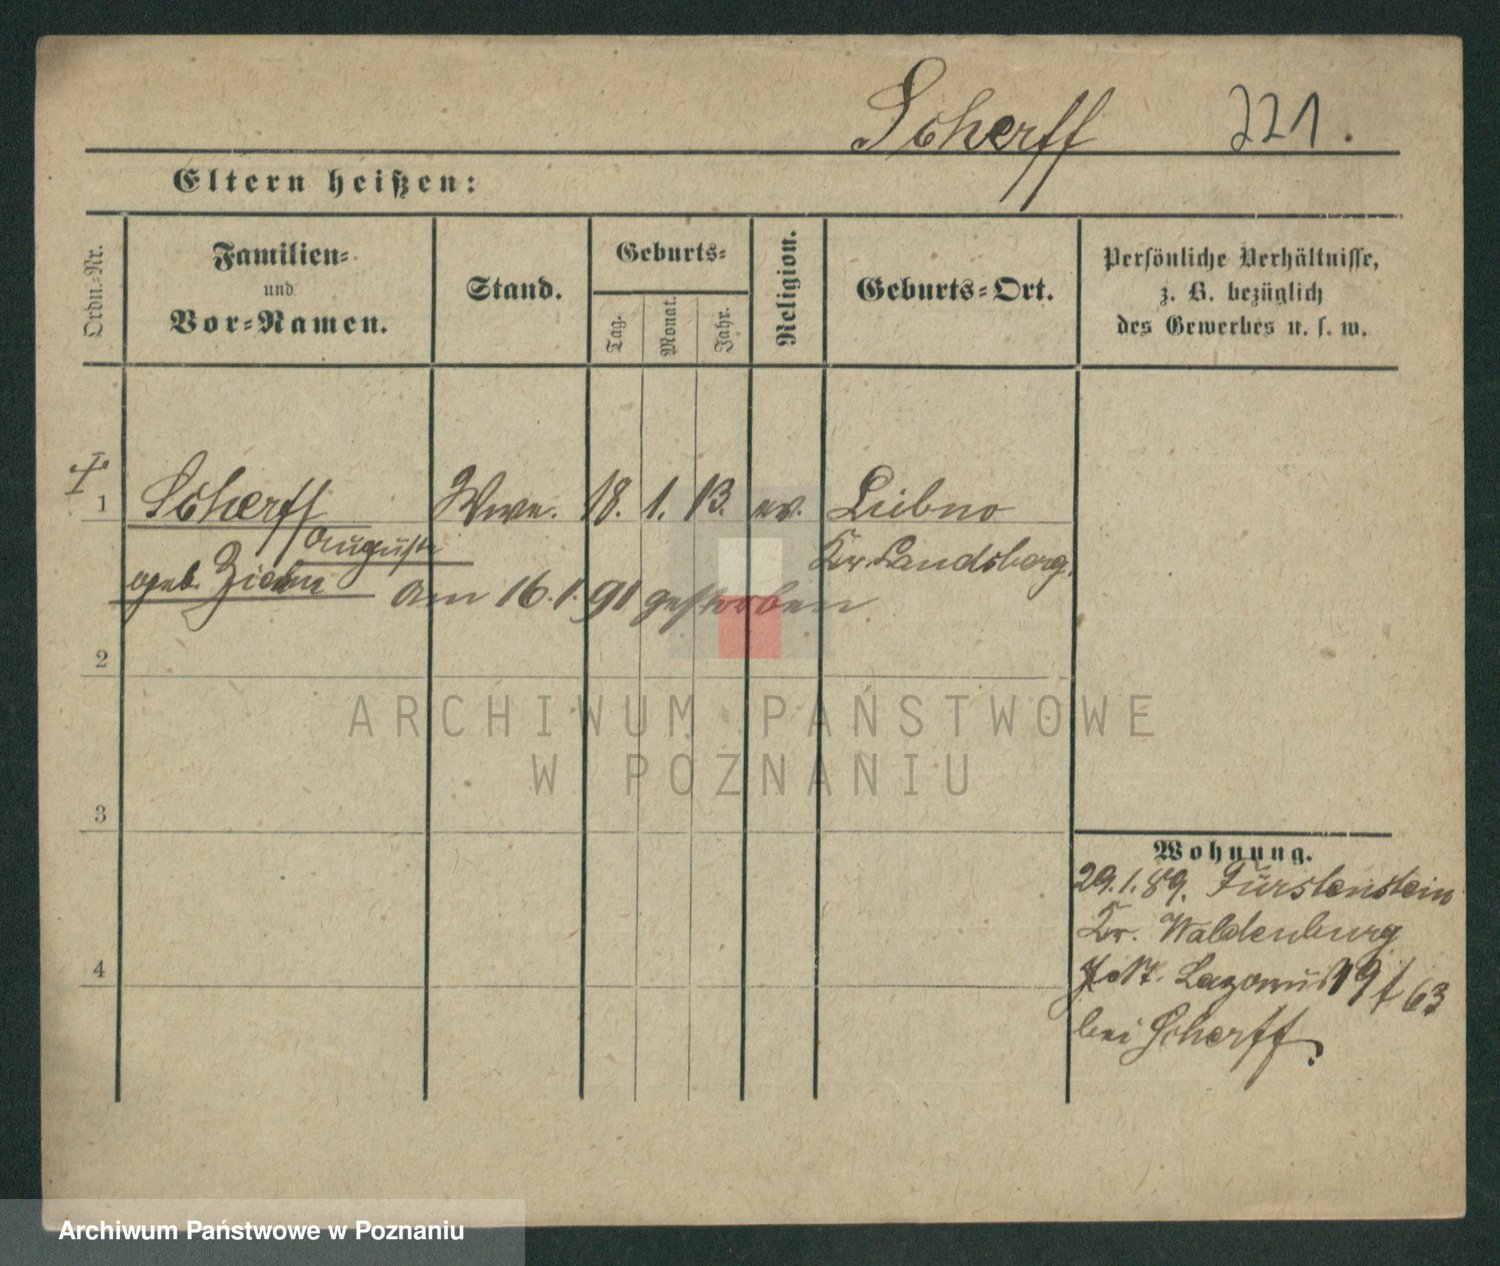 Scherff 221.
Eltern heißen:
Ordn.-Nr.
Familien-
und
Vor-Namen.
Stand.
Geburts-
Tag.
Monat.
Jahr.
Religion.
Geburts-Ort.
Persönliche Verhältnisse,
z. B. bezüglich
des Gewerbes u. s. w.
1 Scherff Wwe. 18. 1. 13. ev. Liebno
Auguste Kr. Landsberg.
geb. am 16.1.91 gestorben
2
3
4
Wohnung.
29.1.89. Fürstenstein
Kr. Waldenburg
19/4 63
bei Scherff
ARCHIWUM PAŃSTWOWE
W POZNANIU
Archiwum Państwowe w Poznaniu